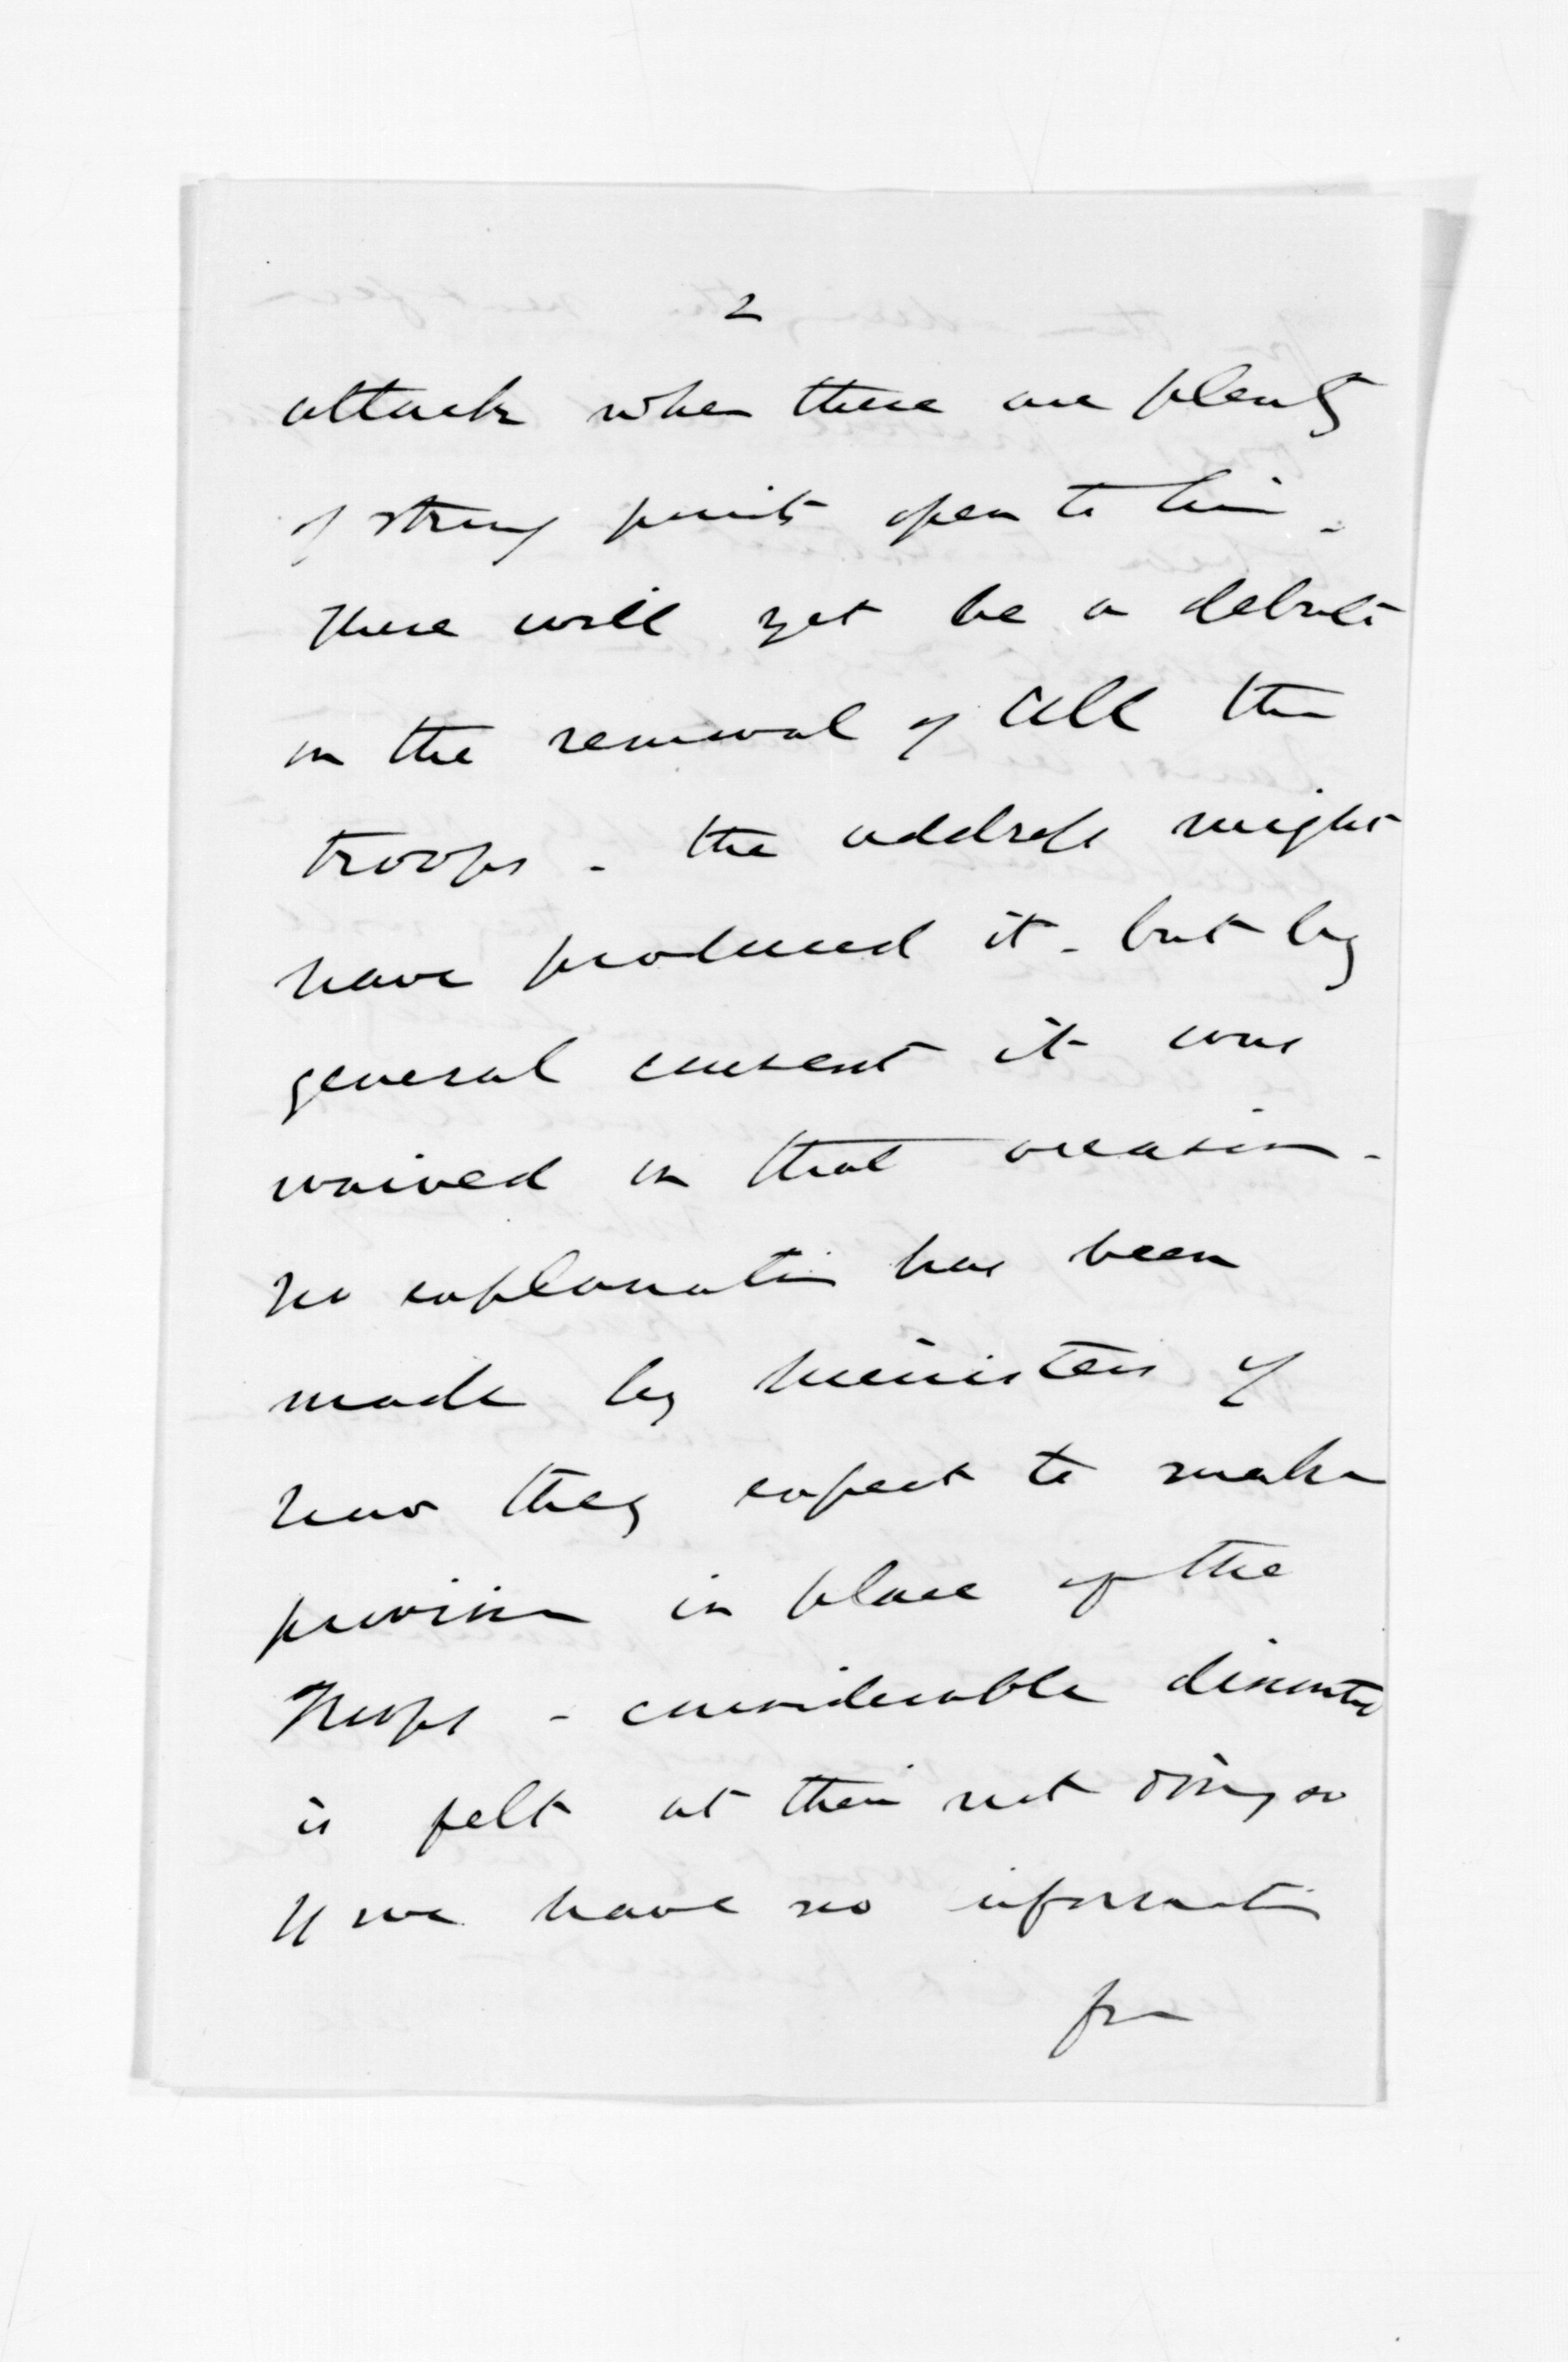 2
attack when there are plenty
of strong points open to him -
There will yet be a debate
on the removal of all the
troops - the address might
have produced it - but by
general consent it was
waived on that occasion -
No explanation has been
made by ministers of
how they expect to make
provision in place of the
Troops - considerable discontent
is felt at their not doing so
If we have no information
from